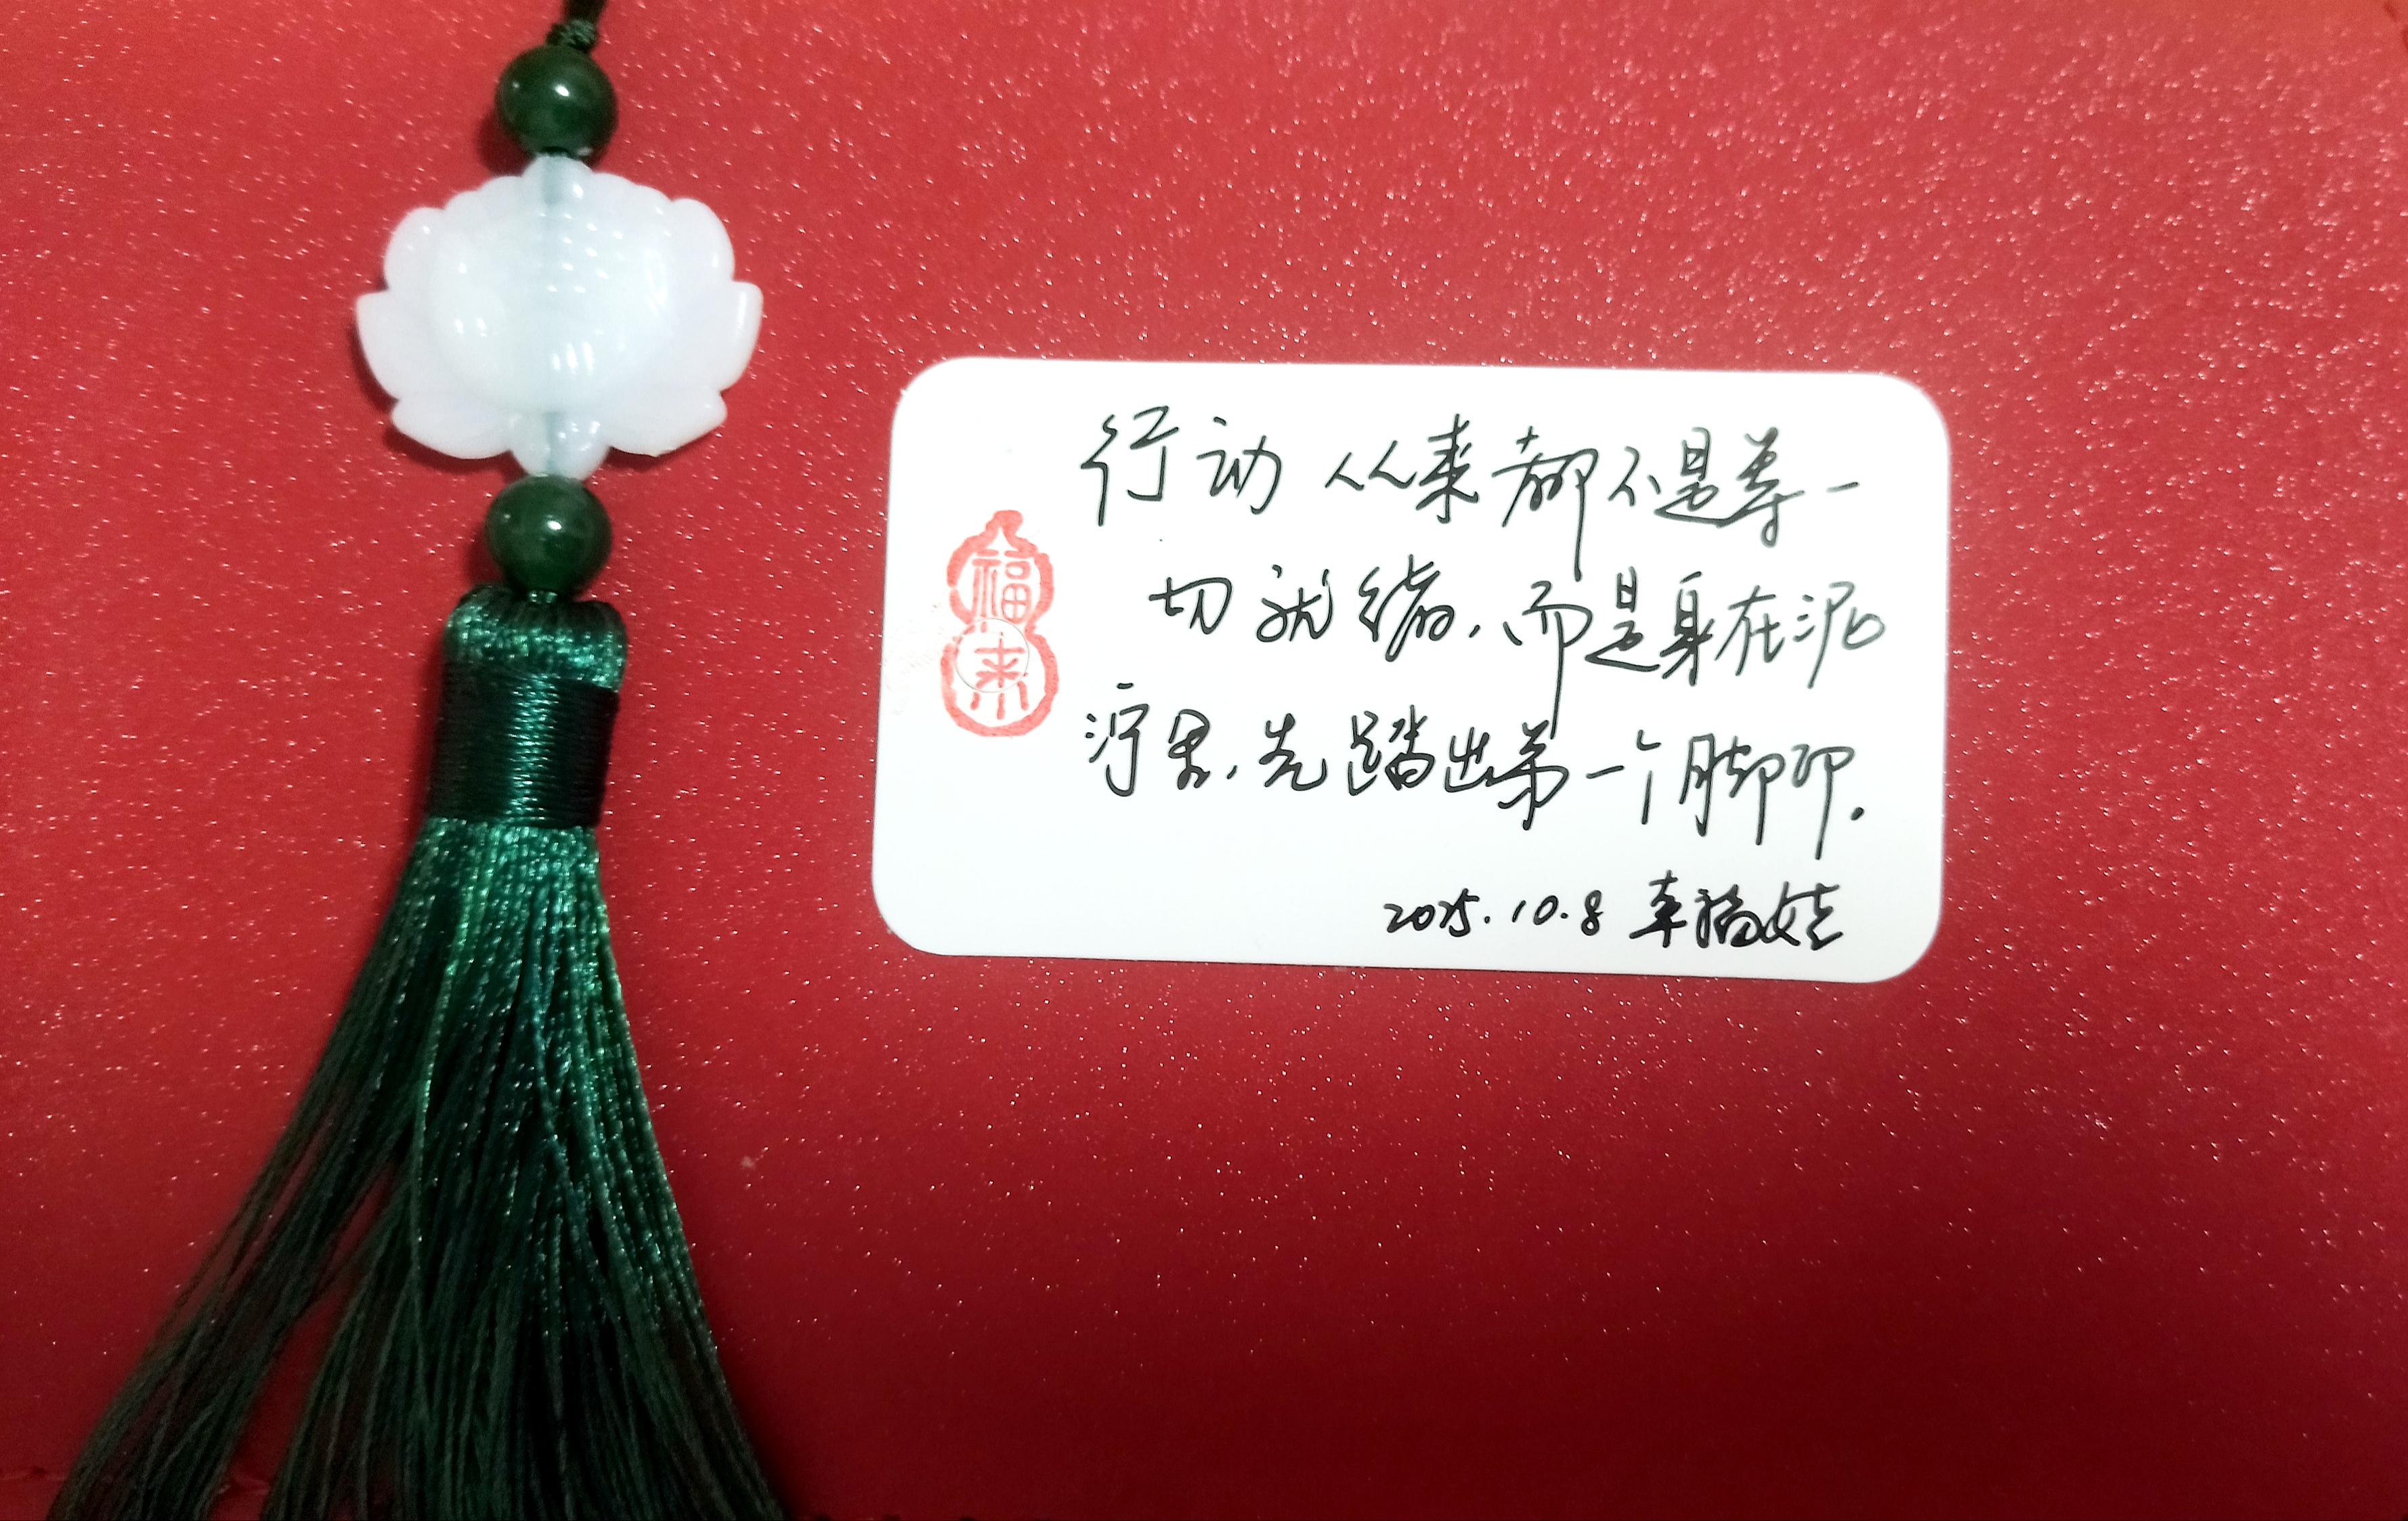 行动从来都不是等一
切就绪,而是身在泥
泞里,先踏出第一个脚印.
2025.10.8
福来